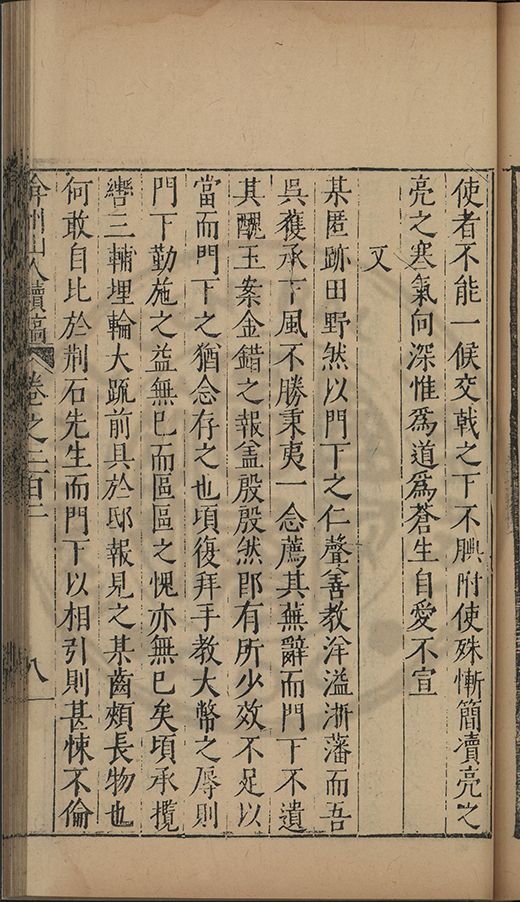 使者不能一候交戟之下不腆附使殊慚簡瀆亮之
亮之寒氣向深惟爲道爲蒼生自愛不宣
又
某匿跡田野然以門下之仁聲善教洋溢浙藩而吾
吳獲承下風不勝秉夷一念薦其蕪辭而門下不遺
其醜玉案金錯之報盖殷殷然卽有所少效不足以
當而門下之猶念存之也頃復拜手教大幣之辱則
門下勤施之益無已而區區之愧亦無已矣頃承攬
轡三輔埋輪大䟽前具於邸報見之某齒頰長物也
何敢自比於荆石先生而門下以相引則甚悚不倫
弇州山人續稿 卷之二百二 八